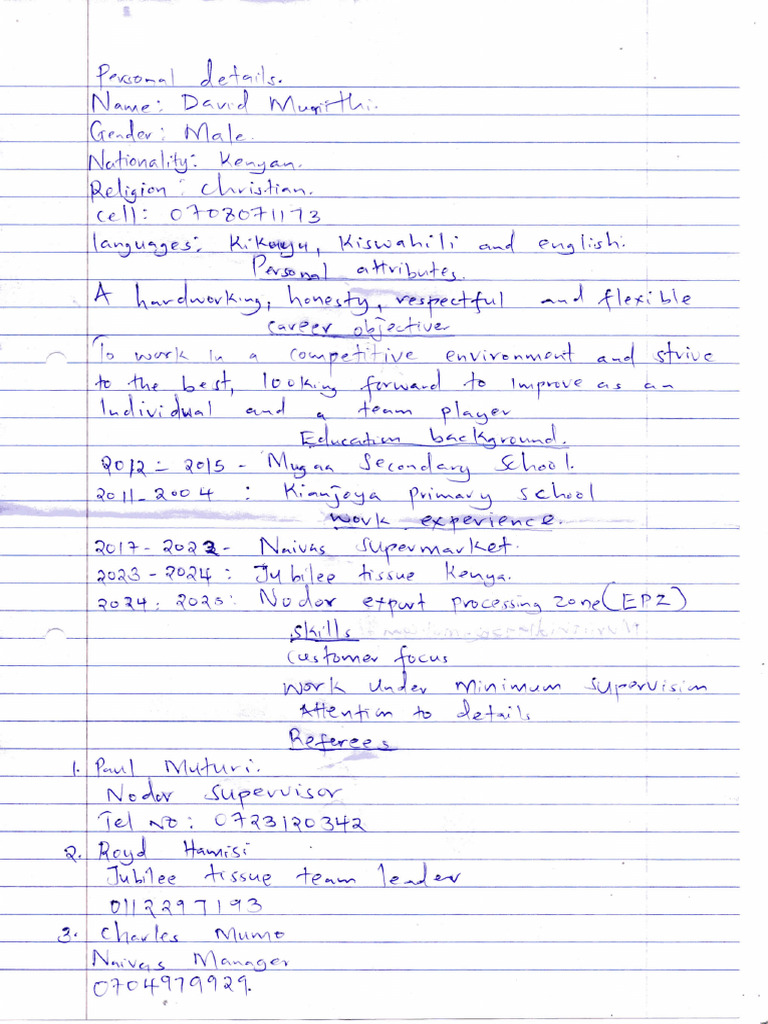 Personal details.
Name: David Murithi.
Gender: Male.
Nationality: Kenyan.
Religion: Christian.
Cell: 0708071173
languages: Kikuyu, Kiswahili and english.
Personal attributes.
A hardworking, honesty, respectful and flexible
career objective
To work in a competitive environment and strive
to the best, looking forward to improve as an
Individual and a team player
Education background.
2012 - 2015 - Mugaa Secondary School.
2011 - 2004 : Kianjoya primary school
Work experience.
2017 - 2022 - Naivas Supermarket.
2023 - 2024 : Jubilee tissue Kenya.
2024 . 2025 : Nodor export processing zone (EPZ)
Skills
Customer focus
Work Under Minimum Supervision
Attention to details
Referees
1. Paul Muturi.
Nodor Supervisor
Tel No : 0723120342
2. Royd Hamisi
Jubilee tissue team leader
0112297193
3. Charles Mumo
Naivas Manager
0704979929.